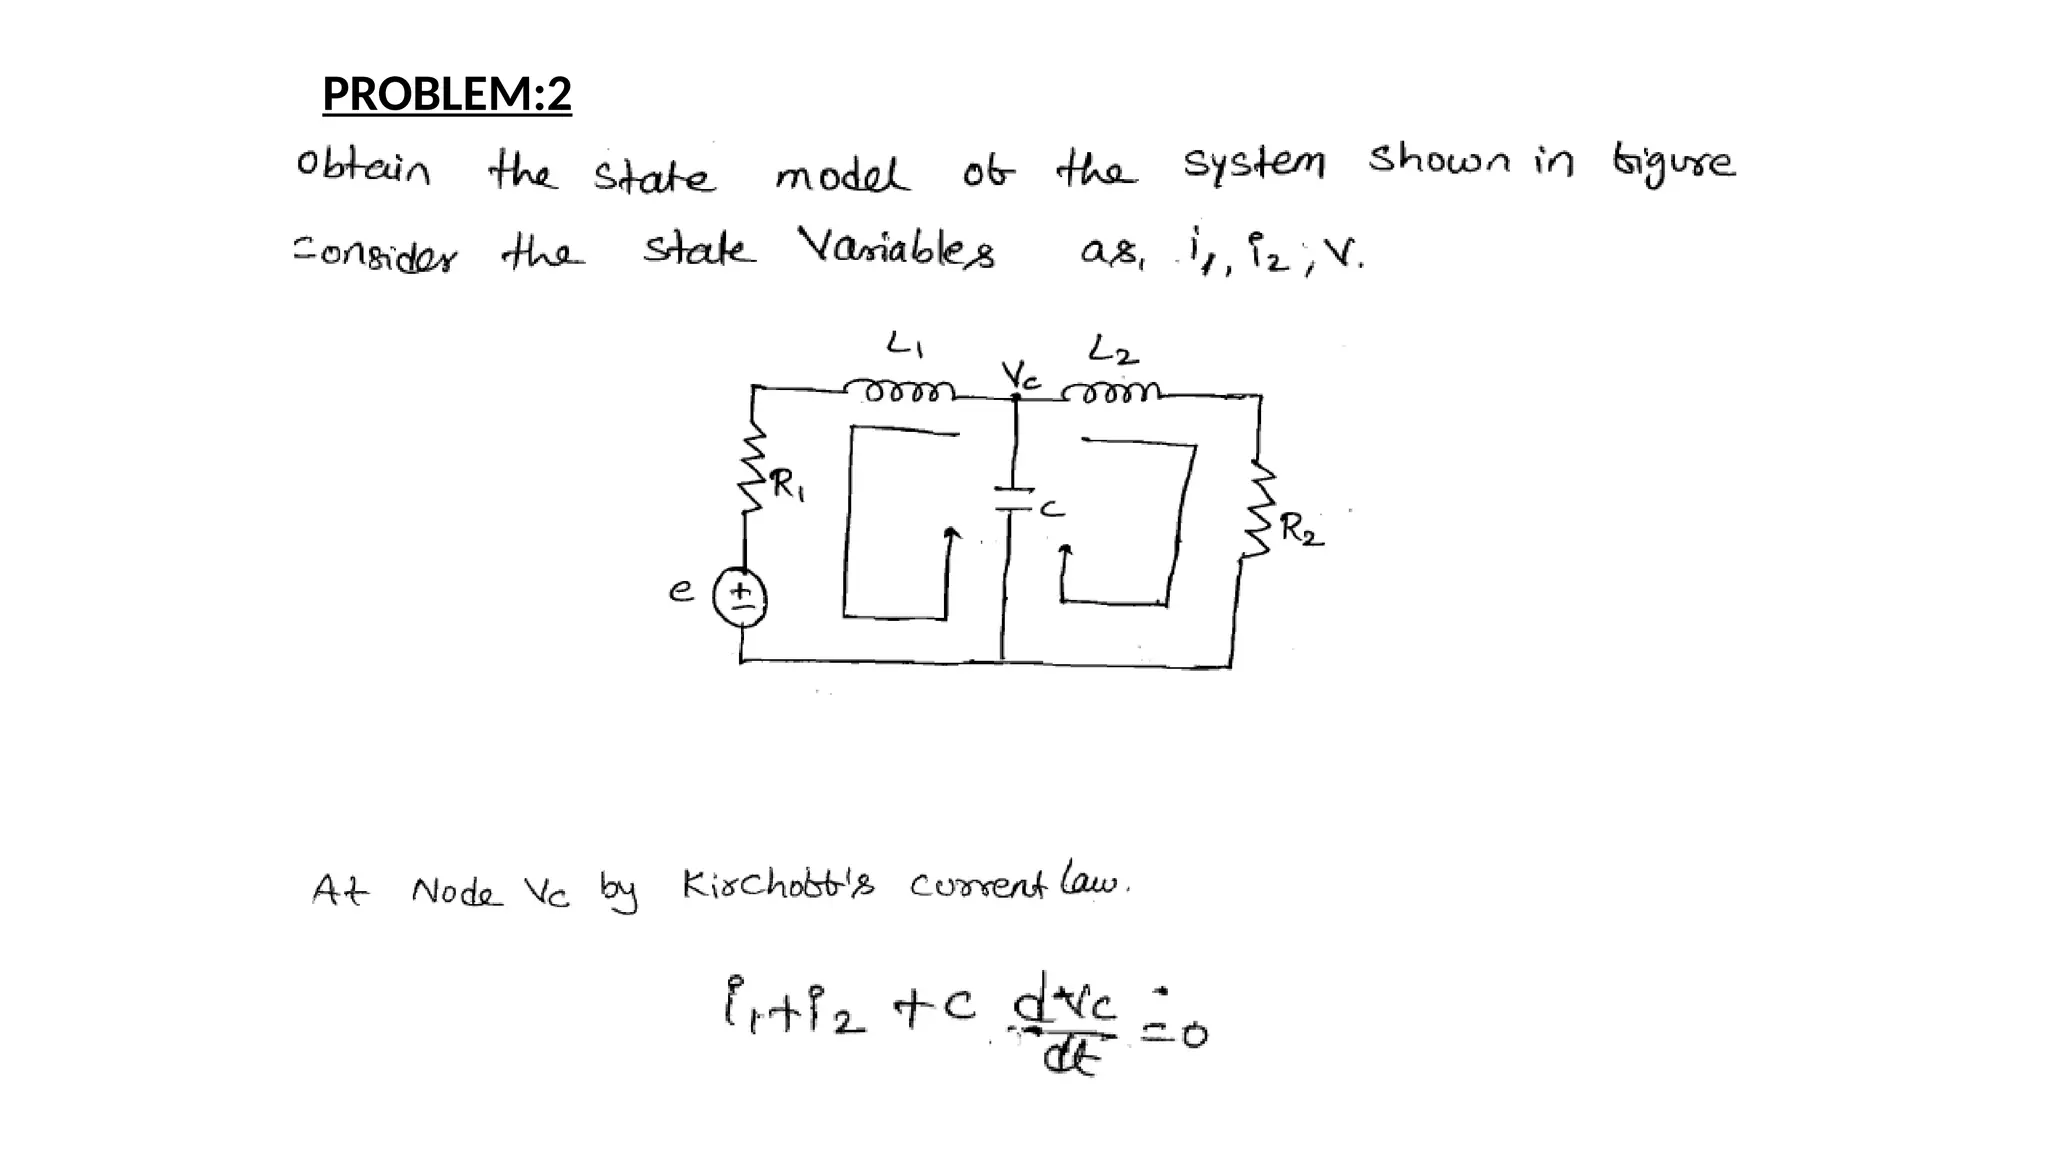 PROBLEM:2
obtain the state model of the system shown in figure
consider the state variables as, i1, i2, v.
L1
L2
Vc
R1
C
R2
e
+
-
At Node Vc by Kirchoff's current law.
i1+i2 + C dVc/dt = 0